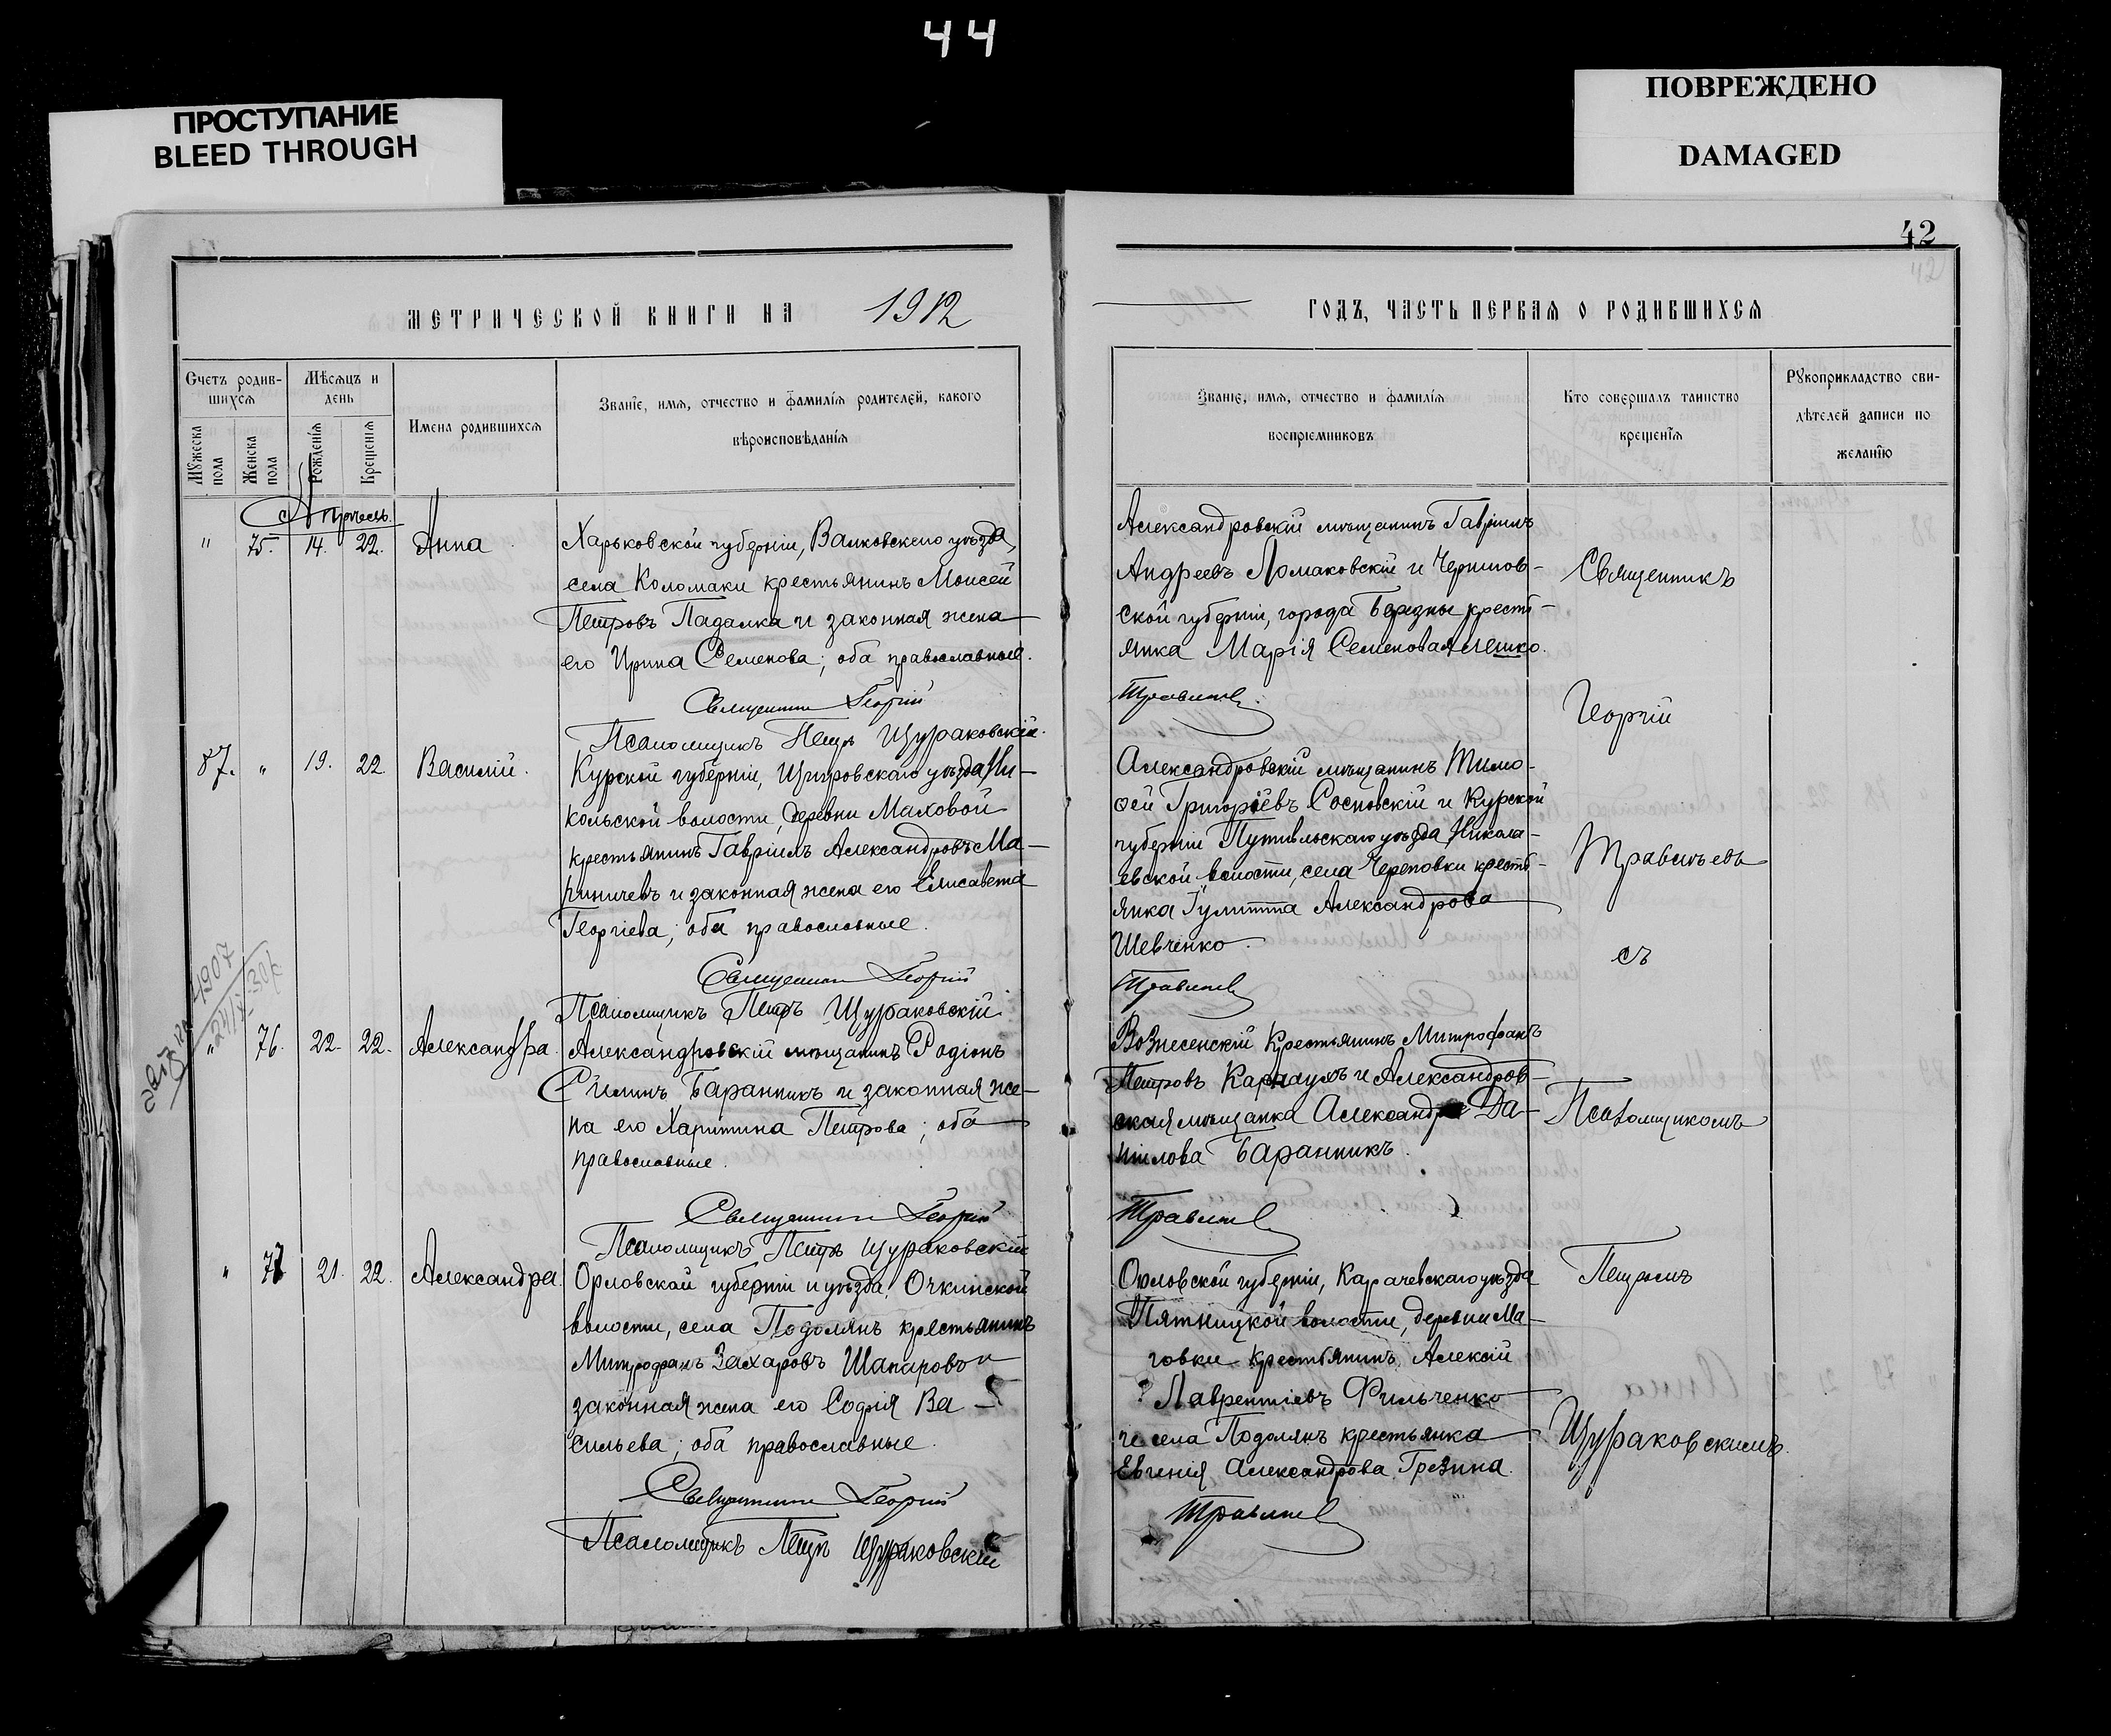 44
ПРОСТУПАНИЕ
BLEED THROUGH
ПОВРЕЖДЕНО
DAMAGED
42
42
МЕТРИЧЕСКОЙ КНИГИ НА 1912
ГОДЪ, ЧАСТЬ ПЕРВАЯ О РОДИВШИХСЯ
Счетъ родив-
шихся
Мѣсяцъ и
день
Мужеска
пола
Женска
пола
Рожденія
Крещенія
Имена родившихся
Званіе, имя, отчество и фамилія родителей, какого
вѣроисповѣданія
Званіе, имя, отчество и фамилія
воспріемниковъ
Кто совершалъ таинство
крещенія
Рукоприкладство сви-
дѣтелей записи по
желанію
Апрѣль
" 75. 14. 22. Анна
Харьковской губерніи, Валковскаго уѣзда,
села Коломаки крестьянинъ Моисей
Петровъ Падалка и законная жена
его Ирина Семенова; оба православные.
Священникъ Георгій
Псаломщикъ Петръ Щураковскій.
Александровскій мѣщанинъ Гавріилъ
Андреевъ Ломаковскій и Чернигов-
ской губерніи, города Березны кресть-
янка Марія Семенова
Травинъ
87. " 19. 22 Василій.
Курской губерніи, Щигровскаго уѣзда, Ни-
кольской волости, деревни Маховой
крестьянинъ Гавріилъ Александровъ Ма-
и законная жена его Елисавета
Георгіева; оба православные.
Священникъ Георгій
Псаломщикъ Петръ Щураковскій
Александровскій мѣщанинъ Тимо-
ѳей Григоріевъ Сосновскій и Курской
губерніи Путивльскаго уѣзда, Никола-
евской волости, села Череповки кресть-
янка Александрова
Шевченко.
1907
" 76. 22. 22. Александра.
Александровскій мѣщанинъ Родіонъ
Баранникъ и законная же-
на его Харитина Петрова; оба
православные.
Священникъ Георгій
Псаломщикъ Петръ Щураковскій
Вознесенскій крестьянинъ Митрофанъ
Петровъ Карнаухъ и Александров-
ская мѣщанка Александра Да-
ніилова Баранникъ.
" 77 21. 22. Александра.
Орловской губерніи и уѣзда, Очкинской
волости, села Подолянъ крестьянинъ
Митрофанъ Захаровъ Шапаровъ и
законная жена его Софія Ва-
сильева; оба православные.
Священникъ Георгій
Псаломщикъ Петръ Щураковскій
Орловской губерніи, Карачевскаго уѣзда
Пятницкой волости, деревни Ма-
говки крестьянинъ Алексій
Лаврентіевъ Фильченко
и села Подолянъ крестьянка
Евгенія Александрова Грезина.
Священникъ
Георгій
съ
Псаломщикомъ
Петромъ
Щураковскимъ.